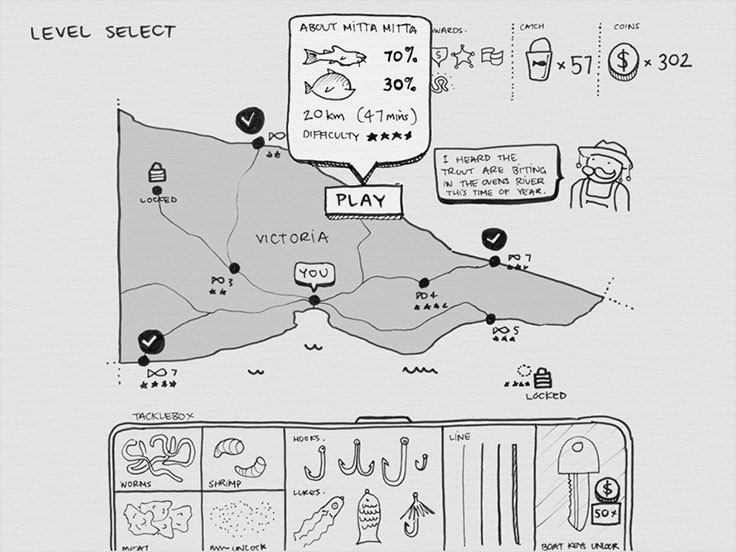 LEVEL SELECT
ABOUT MITTA MITTA
70%
30%
20 KM (47 MINS)
DIFFICULTY
PLAY
CATCH
× 57
COINS
$ × 302
I HEARD THE
TROUT ARE BITING
IN THE OVENS RIVER
THIS TIME OF YEAR.
LOCKED
VICTORIA
YOU
3
7
4
5
7
LOCKED
TACKLEBOX
WORMS
SHRIMP
HOOKS.
LINE
LURES.
MEAT
UNLOCK
$
50 ×
BOAT KEYS UNLOCK